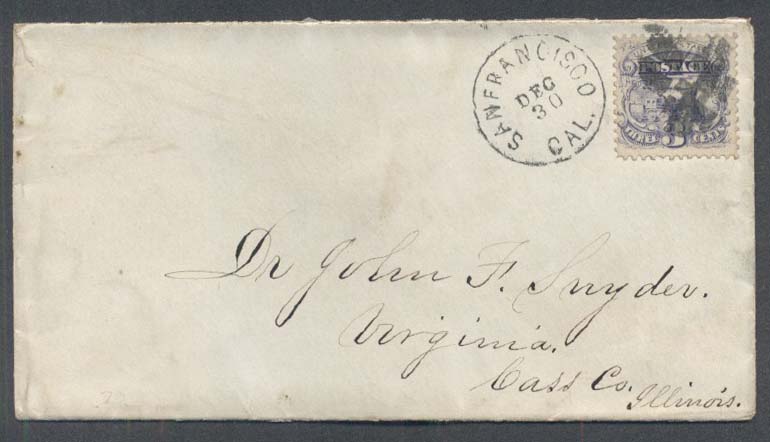 SAN FRANCISCO
DEC
30
CAL.
POSTAGE
Dr John F. Snyder.
Virginia.
Cass Co.
Illinois.